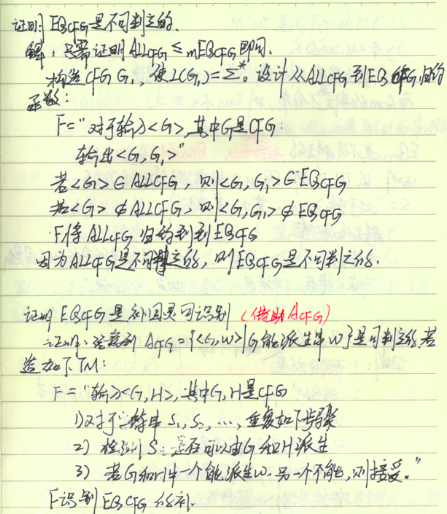 证明 EQCFG是不可判定的.
解: 只需证明ALLCFG ≤mEQCFG即可.
构造CFG G₁, 使L(G₁)=Σ*. 设计从ALLCFG到EQCFG 归约
函数:
F="对于输入<G>,其中G是CFG:
输出<G,G₁>"
若<G>∈ALLCFG, 则<G,G₁>∈EQCFG
若<G>∉ALLCFG, 则<G,G₁>∉EQCFG
F将ALLCFG归约到到EQCFG
因为ALLCFG是不可判定的, 则EQCFG是不可判定的.
证明 EQCFG是补图灵可识别 (借助ACFG)
证明: 注意到 ACFG={<G,w>|G能派生串w}是可判定的, 若
造如下TM:
F="输入<G,H>, 其中G,H是CFG
1)对于字符串 S₁, S₂, …, 重复如下步骤
2) 检测Sᵢ是否可以由G和H派生
3) 若G和H中一个能派生w. 另一个不能, 则接受."
F识别EQCFG的补.